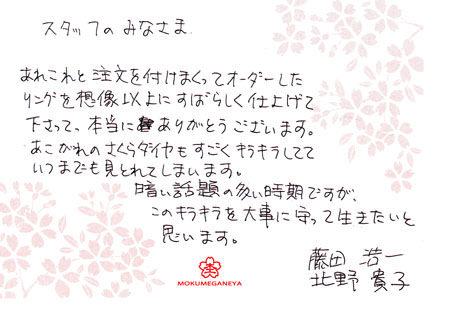 スタッフの みなさま
あれこれと 注文を付けまくってオーダーした
リングを想像以上にすばらしく仕上げて
下さって、本当に ありがとうございます。
あこがれのさくらダイヤもすごくキラキラしてて
いつまでも見とれてしまいます。
暗い話題の多い時期ですが、
このキラキラを大事に守って生きたいと
思います。
藤田 浩一
北野 貴子
MOKUMEGANEYA